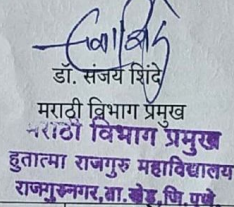 डॉ. संजय शिंदे
मराठी विभाग प्रमुख
मराठी विभाग प्रमुख
हुतात्मा राजगुरु महाविद्यालय
राजगुरुनगर, ता. खेड, जि. पुणे